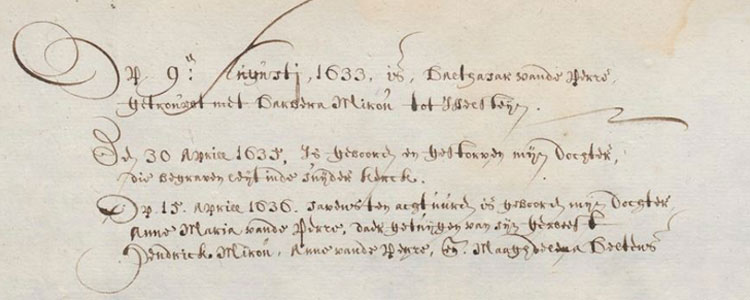 Op 9.en Augusti, 1633, is, Balthasar vande Perre,
getrouwt met Barbera Mirou tot
Den 30 Aprill 1635, Is gebooren en gestorven mijn Dochter,
die begraven leyt inde Suyder Kerck.
Op 15. Aprill 1636. savens ten acht uuren is geboorn mijn Dochter
Anne Maria vande Perre, daer getuygen van sijn geweest
Hendrick Mirou, Anne vande Perre, en Maaghdelena